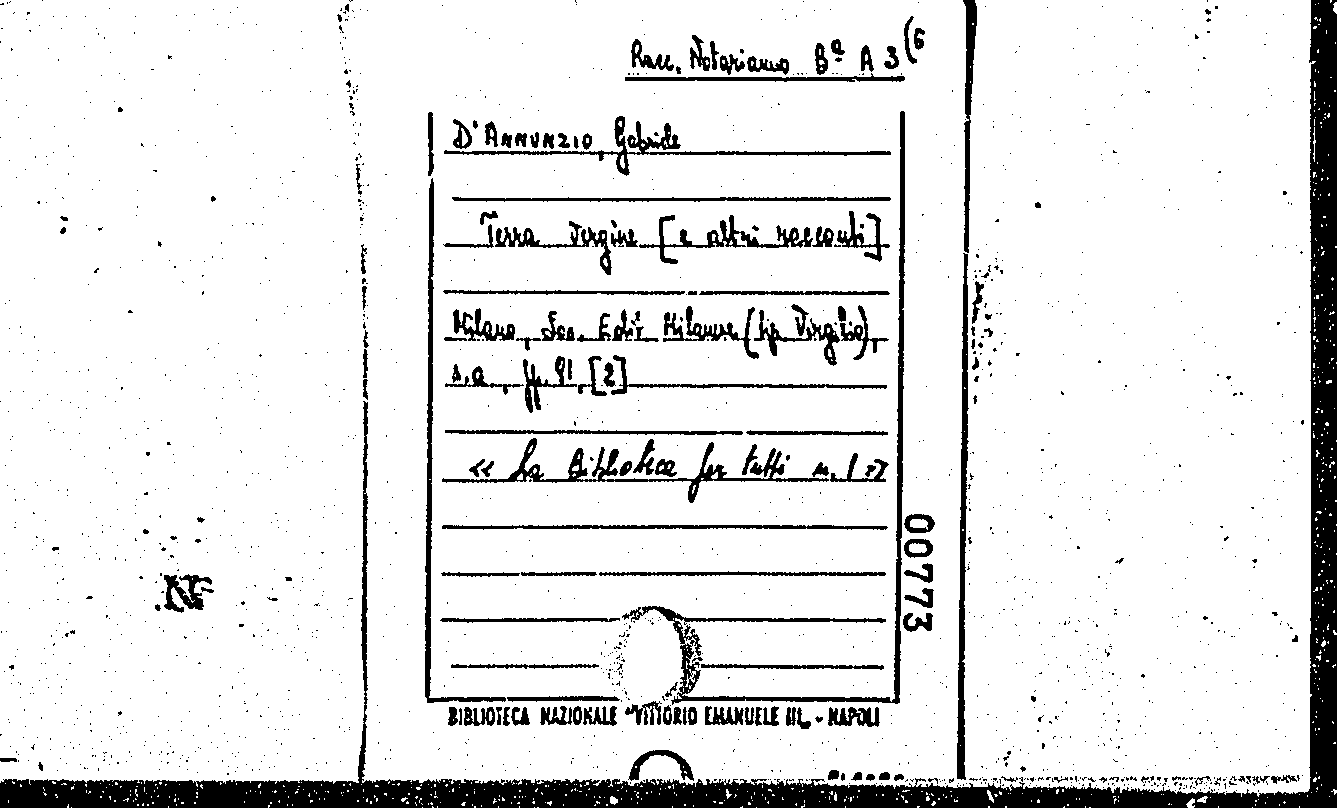 Racc. Notarianno Bª A 3 (6
D'ANNUNZIO, Gabriele
Terra Vergine [e altri racconti]
Milano, Soc. Edit. Milanese (tip. Virgilio),
s.a., pp. 91, [2]
« La Biblioteca per tutti n. 1 »
007773
BIBLIOTECA NAZIONALE "VITTORIO EMANUELE III„ - NAPOLI